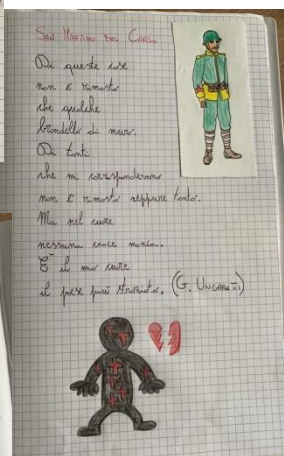 SAN MARTINO DEL CARSO
Di queste case
non è rimasto
che qualche
brandello di muro.
Di tanti
che mi corrispondevano
non è rimasto neppure tanto.
Ma nel cuore
nessuna croce manca.
È il mio cuore
il paese più straziato. (G. UNGARETTI)